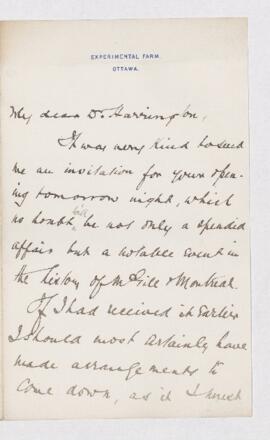 EXPERIMENTAL FARM.
OTTAWA.
My dear Dr Harrington,
It was very kind to send
me an invitation for your open-
ing tomorrow night, which
no doubt will be not only a splendid
affair but a notable event in
the history of McGill & Montreal.
If I had received it earlier
I should most certainly have
made arrangements to
come down, as it I